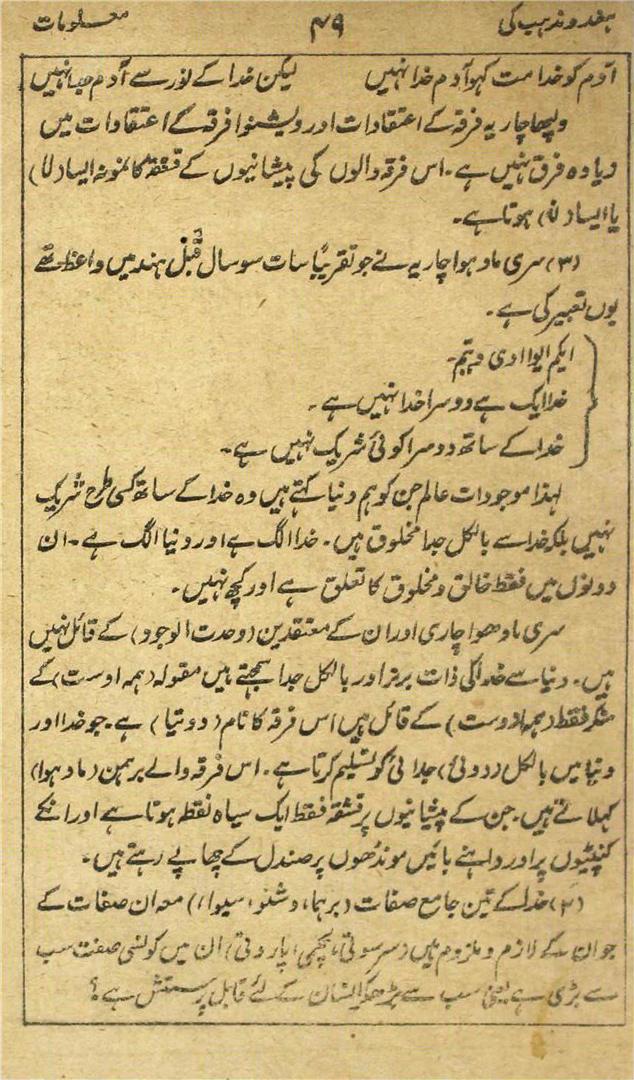 ہندو مذہب کی ۴۹ معلومات
آدم کو خدا مت کہو آدم خدا نہیں لیکن خدا کے نور سے آدم جدا نہیں
ولبھاچاریہ فرقہ کے اعتقادات اور ویشنوا فرقہ کے اعتقادات میں
زیادہ فرق نہیں ہے۔ اس فرقہ والوں کی پیشانیوں کے قشقہ کا نمونہ ایسا
یا ایسا ہوتا ہے۔
(۳) سری مادہوا چاریہ نے جو تقریباً سات سو سال قبل ہند میں واعظ تھے
یوں تعبیر کی ہے۔
ایکم ایوا ادی وتیم۔
خدا ایک ہے دوسرا خدا نہیں ہے۔
خدا کے ساتھ دوسرا کوئی شریک نہیں ہے۔
لہذا موجودات عالم جن کو ہم دنیا کہتے ہیں وہ خدا کے ساتھ کسی طرح شریک
نہیں بلکہ خدا سے بالکل جدا مخلوق ہیں۔ خدا الگ ہے اور دنیا الگ ہے۔ ان
دونوں میں فقط خالق و مخلوق کا تعلق ہے اور کچھ نہیں۔
سری مادھوا چاری اور ان کے معتقدین (وحدت الوجود) کے قائل نہیں
ہیں۔ دنیا سے خدا کی ذات برتر اور بالکل جدا سمجھتے ہیں مقولہ (ہمہ اوست) کے
منکر فقط (ہمہ ازوست) کے قائل ہیں اس فرقہ کا نام (دوتیا) ہے۔ جو خدا اور
دنیا میں بالکل (دوئی) جدائی کو تسلیم کرتا ہے۔ اس فرقہ والے برہمن (مادہوا)
کہلاتے ہیں۔ جن کے پیشانیوں پر قشقہ فقط ایک سیاہ نقطہ ہوتا ہے اور انکے
کنپٹیوں پر اور داہنے بائیں مونڈھوں پر صندل کے چھاپے رہتے ہیں۔
(۴) خدا کے تین جامع صفات (برہما، وشنو، سیوا،) معہ ان صفات کے
جو ان کے لازم و ملزوم ہیں (سرسوتی، لچھمی، پاروتی) ان میں کونسی صفت سب
سے بڑی ہے یعنی سب سے بڑھکر انسان کے لئے قابل پرستش ہے؟